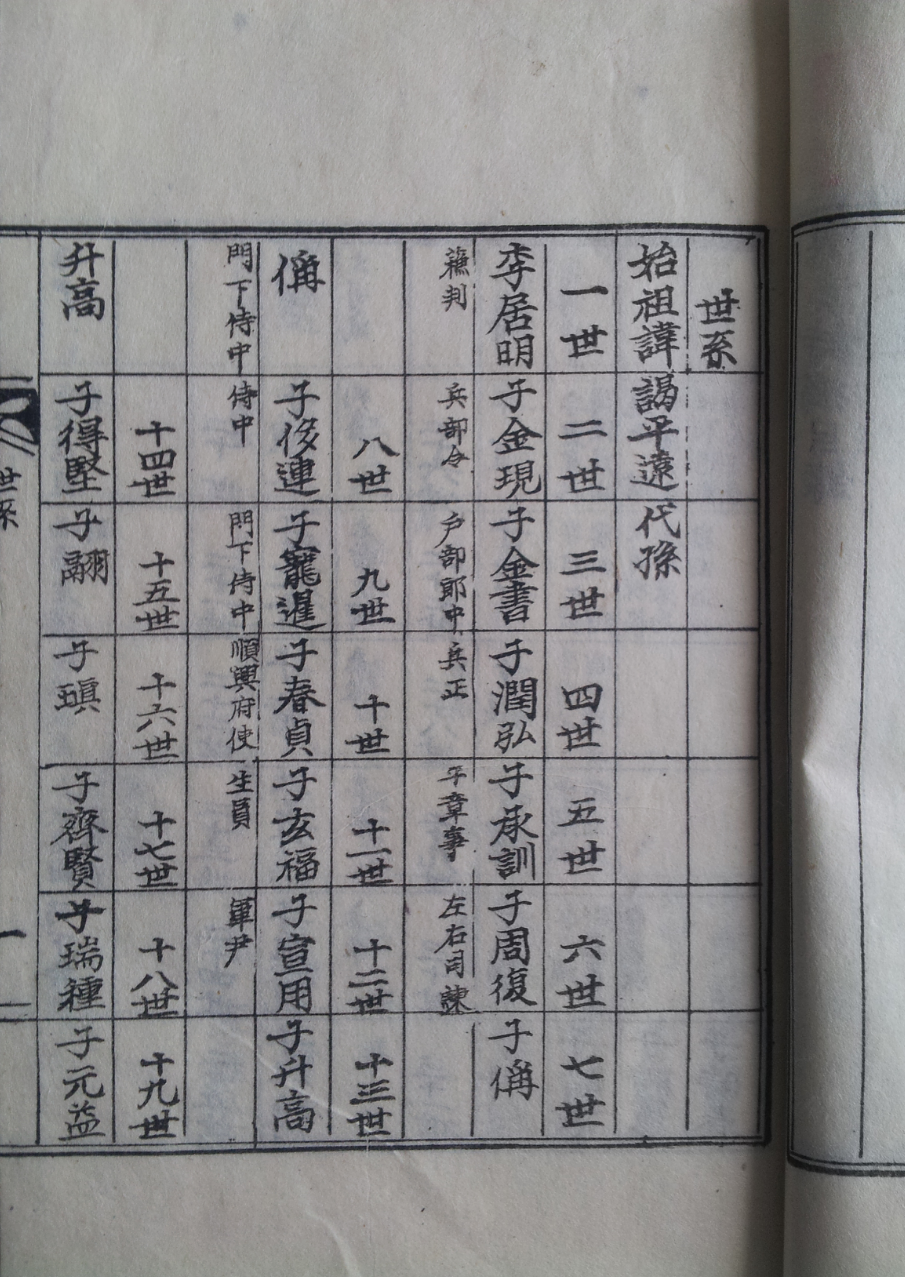 世系
始祖諱謁平遠代孫
一世 二世 三世 四世 五世 六世 七世
李居明 子金現 子金書 子潤弘 子承訓 子周復 子偁
蘓判 兵部令 戶部郎中 兵正 平章事 左右司諫
八世 九世 十世 十一世 十二世 十三世
偁 子侈連 子寵暹 子春貞 子玄福 子宣用 子升高
門下侍中 侍中 門下侍中 順興府使 生員 軍尹
十四世 十五世 十六世 十七世 十八世 十九世
升高 子得堅 子翮 子瑱 子齊賢 子瑞種 子元益
世系
一